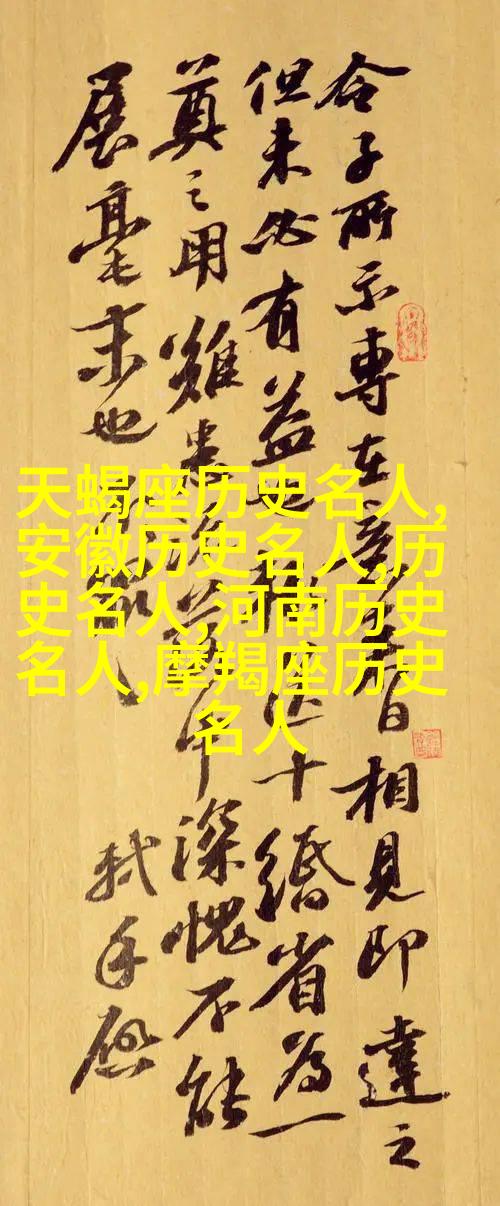 子所示專在日相見即達之
但未必有益也十緡省為一
奠之用雖中深愧不能
展毫末也
軾手啟
天蝎座历史名人,
安徽历史名人,历
史名人,河南历史
名人,摩羯座历史
名人